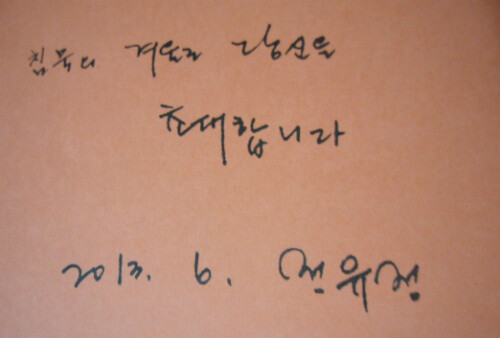 침묵의 겨울로 당신을
초대합니다
2013. 6. 정유정